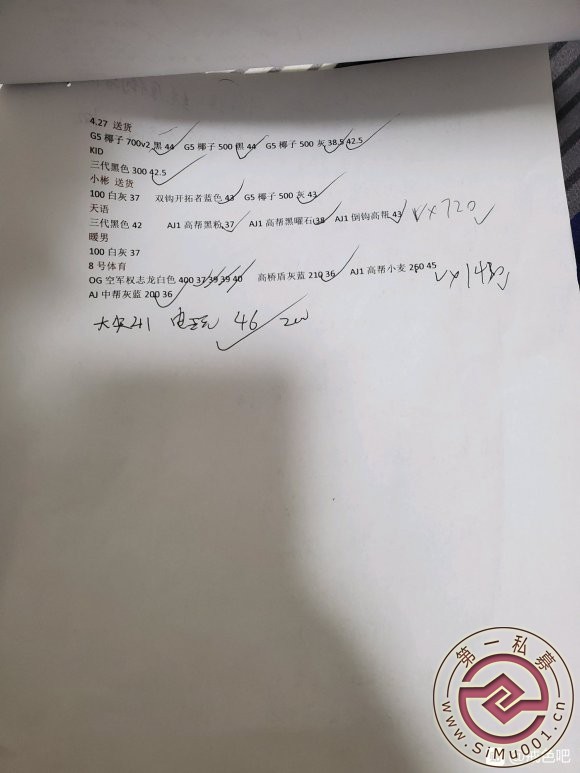 4.27 送货
G5 椰子 700v2 黑 44 G5 椰子 500 黑 44 G5 椰子 500 灰 38.5 42.5
KID
三代黑色 300 42.5
小彬 送货
100 白灰 37 双钩开拓者蓝色 43 G5 椰子 500 灰 43
天语
三代黑色 42 AJ1 高帮黑粉 37 AJ1 高帮黑曜石 38 AJ1 倒钩高帮 43 VX720
暖男
100 白灰 37
8 号体育
OG 空军权志龙白色 400 37 39 39 40 高桥盾灰蓝 210 36 AJ1 高帮小麦 260 45
AJ 中帮灰蓝 200 36
46
第一私募
www.SiMu001.cn